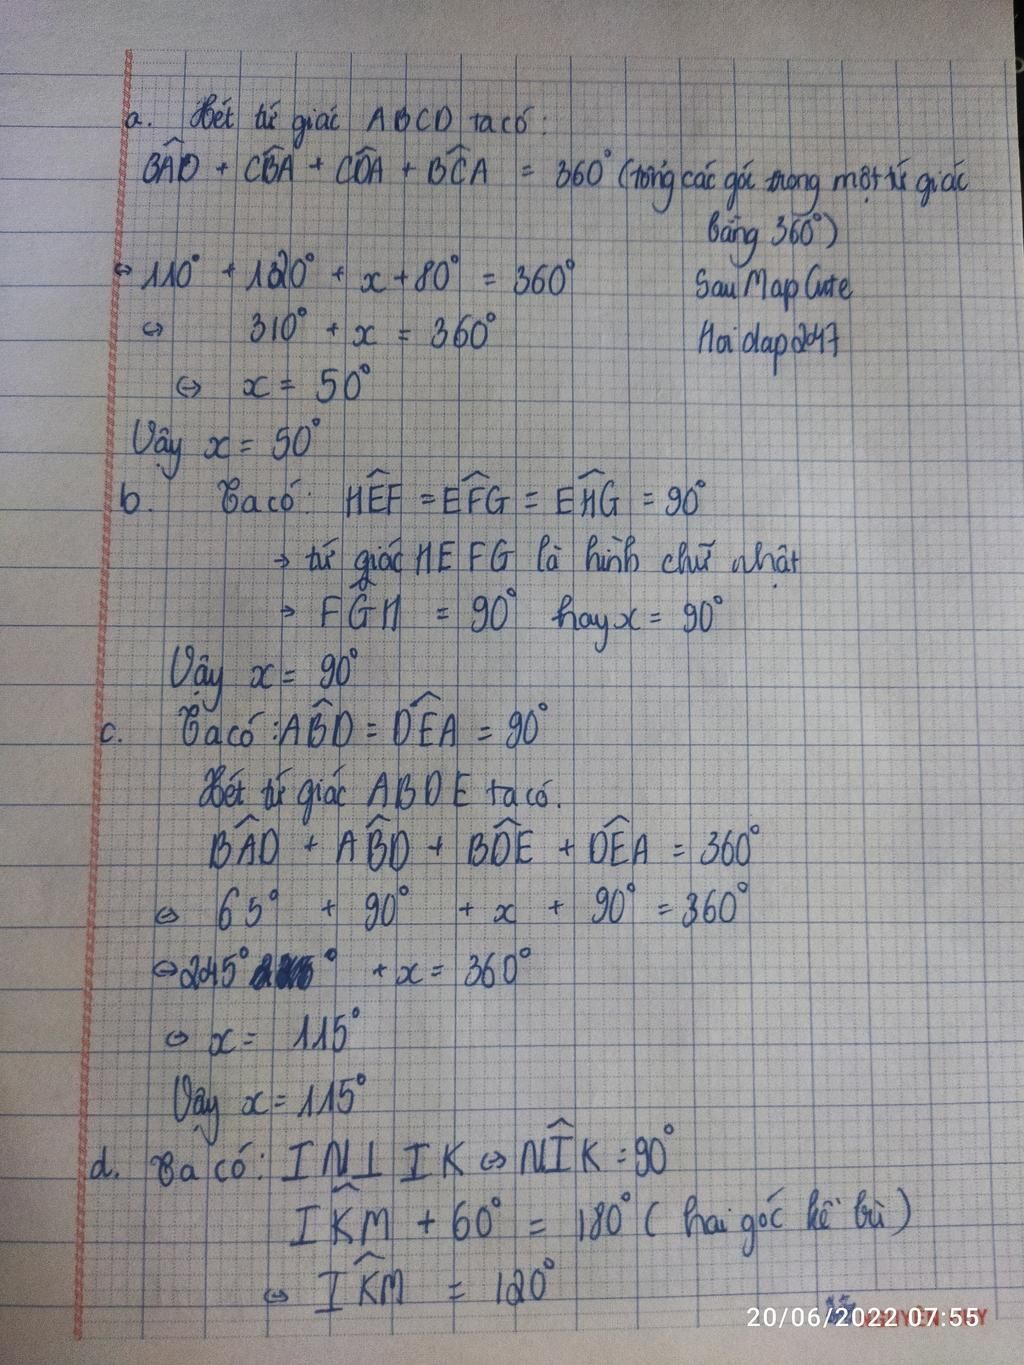 a. Xét tứ giác ABCD ta có:
BÂD + CB̂A + CD̂A + BĈA = 360° (tổng các góc trong một tứ giác
bằng 360°)
⇔ 110° + 120° + x + 80° = 360° SauMapCute
⇔ 310° + x = 360° Hoidap247
⇔ x = 50°
Vậy x = 50°
b. Ta có: HÊF = EF̂G = EĤG = 90°
→ tứ giác HEFG là hình chữ nhật
→ FĜH = 90° hay x = 90°
Vậy x = 90°
c. Ta có: AB̂D = DÊA = 90°
Xét tứ giác ABDE ta có.
BÂD + AB̂D + BD̂E + DÊA = 360°
⇔ 65° + 90° + x + 90° = 360°
⇔ 245° + x = 360°
⇔ x = 115°
Vậy x = 115°
d. Ta có: IN ⊥ IK ⇔ NÎK = 90°
IK̂M + 60° = 180° (hai góc kề bù)
⇔ IK̂M = 120°
20/06/2022 07:55